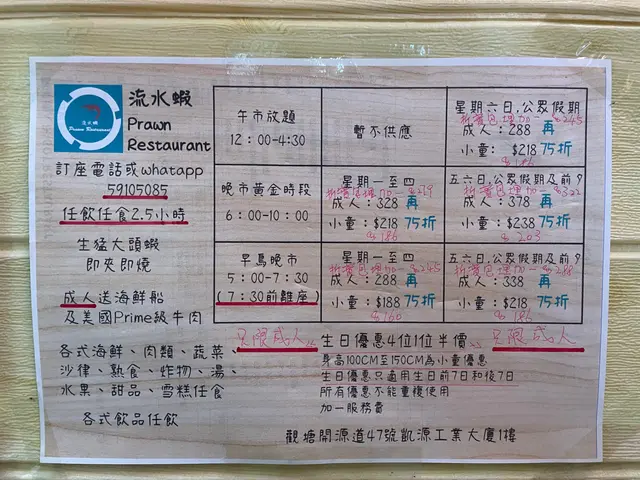 流水蝦
Prawn
Restaurant
訂座電話或whatapp
59105085
任飲任食2.5小時
生猛大頭蝦
即夾即燒
成人送海鮮船
及美國Prime級牛肉
各式海鮮、肉類、蔬菜、
沙律、熟食、炸物、湯、
水果、甜品、雪糕任食
各式飲品任飲
午市放題
12:00-4:30
暫不供應
星期六日,公眾假期
折實包埋加一 $245
成人:288 再
小童:$218 75折
晚市黃金時段
6:00-10:00
星期一至四
成人:328 再
小童:$218 75折
$186
五六日,公眾假期及前夕
折實包埋加一 $322
成人:378 再
小童:$238 75折
$203
早鳥晚市
5:00-7:30
(7:30前離座)
星期一至四
折實包埋加一 $245
成人:288 再
小童:$188 75折
$160
五六日,公眾假期及前夕
折實包埋加一 $288
成人:338 再
小童:$218 75折
$186
只限成人
生日優惠4位1位半價
只限成人
身高100CM至150CM為小童優惠
生日優惠只適用生日前7日和後7日
所有優惠不能重複使用
加一服務費
觀塘開源道47號凱源工業大廈1樓